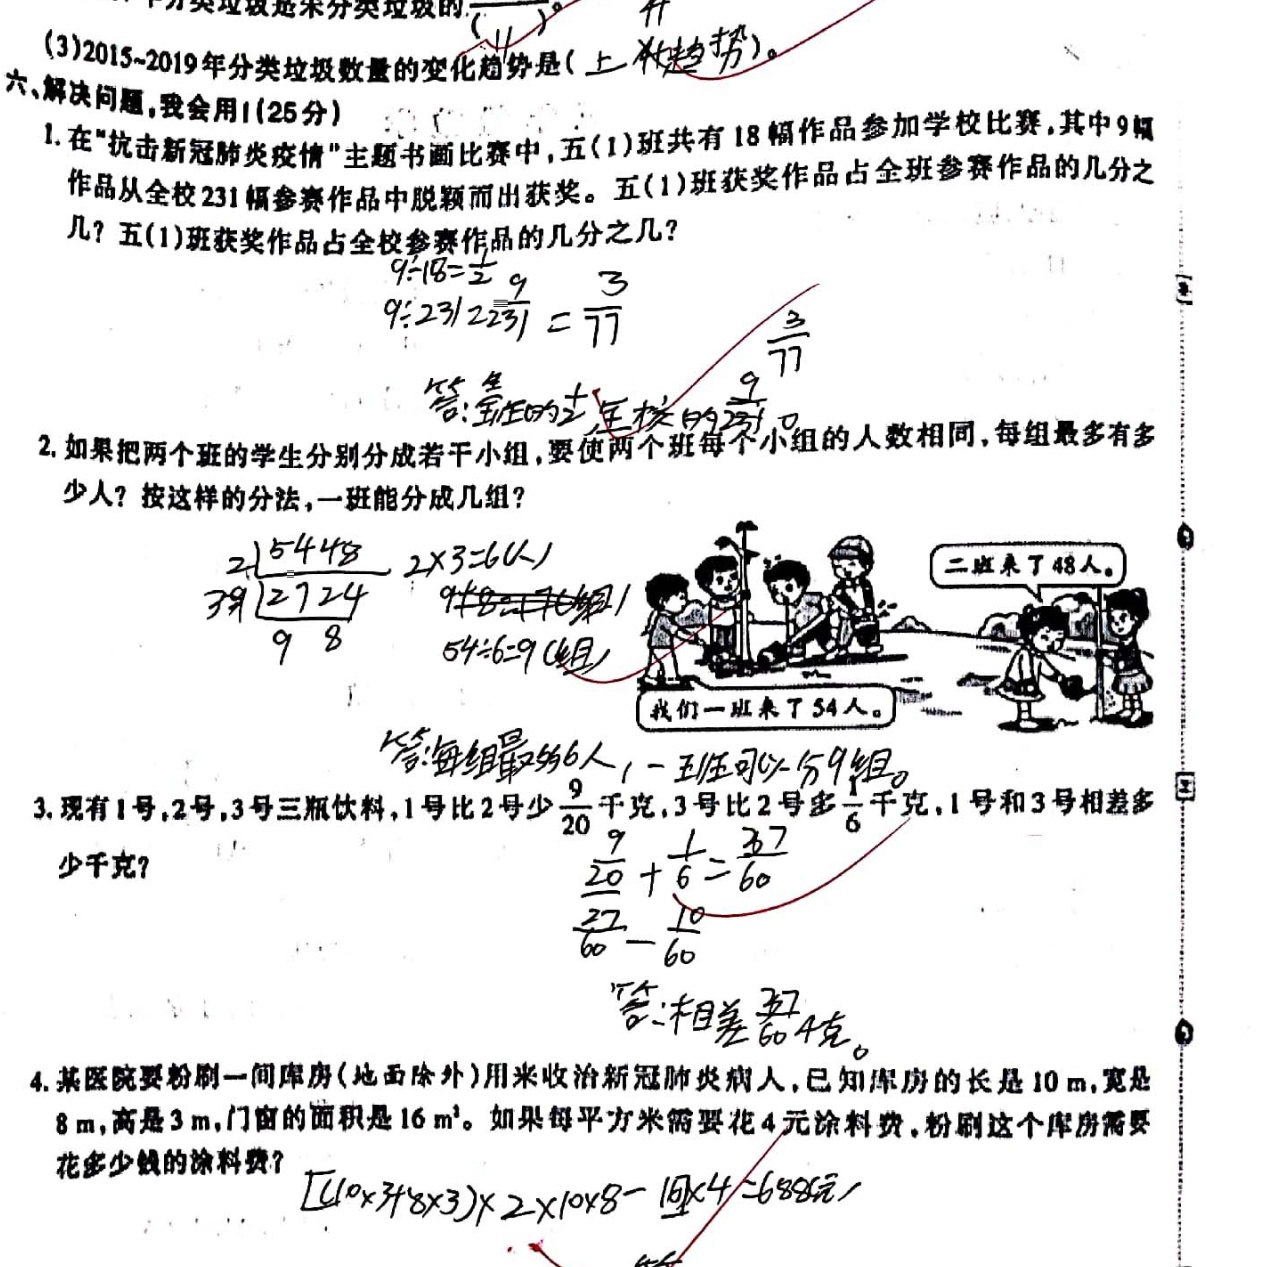 年分类垃圾是未分类垃圾的
(3)2015~2019年分类垃圾数量的变化趋势是(上升趋势)。
六、解决问题,我会用!(25分)
1. 在“抗击新冠肺炎疫情”主题书画比赛中,五(1)班共有18幅作品参加学校比赛,其中9幅
作品从全校231幅参赛作品中脱颖而出获奖。五(1)班获奖作品占全班参赛作品的几分之
几? 五(1)班获奖作品占全校参赛作品的几分之几?
9÷18=1/2
9÷231=9/231=3/77
3/77
答:全班的1/2,全校的9/231。
2. 如果把两个班的学生分别分成若干小组,要使两个班每个小组的人数相同,每组最多有多
少人? 按这样的分法,一班能分成几组?
2 54 48 2×3=6(人)
3 27 24
9 8 54÷6=9(组)
二班来了48人。
我们一班来了54人。
答:每组最多6人,一班可以分9组。
3. 现有1号,2号,3号三瓶饮料,1号比2号少9/20千克,3号比2号多1/6千克,1号和3号相差多
少千克?
9/20+1/6=37/60
27/60-10/60
答:相差37/60千克。
4. 某医院要粉刷一间库房(地面除外)用来收治新冠肺炎病人,已知库房的长是10 m,宽是
8 m,高是3 m,门窗的面积是16 m²。如果每平方米需要花4元涂料费,粉刷这个库房需要
花多少钱的涂料费?
[(10×3+8×3)×2×10×8-16]×4=688(元)
答